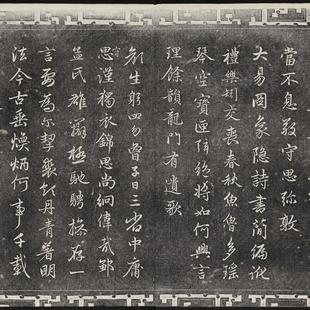 當不息敬守思弥敦
大易圖象隱詩書簡編訛
禮樂矧交喪春秋魚魯多瑤
琴空寶匣弦絕將如何興言
理餘韻龍門有遺歌
顏生躬四勿曾子日三省中庸
首謹獨衣錦思尚絅偉哉鄒
孟氏雄辯極馳騁操存一
言要為尔挈裘領丹青著明
法今古垂煥炳何事千載